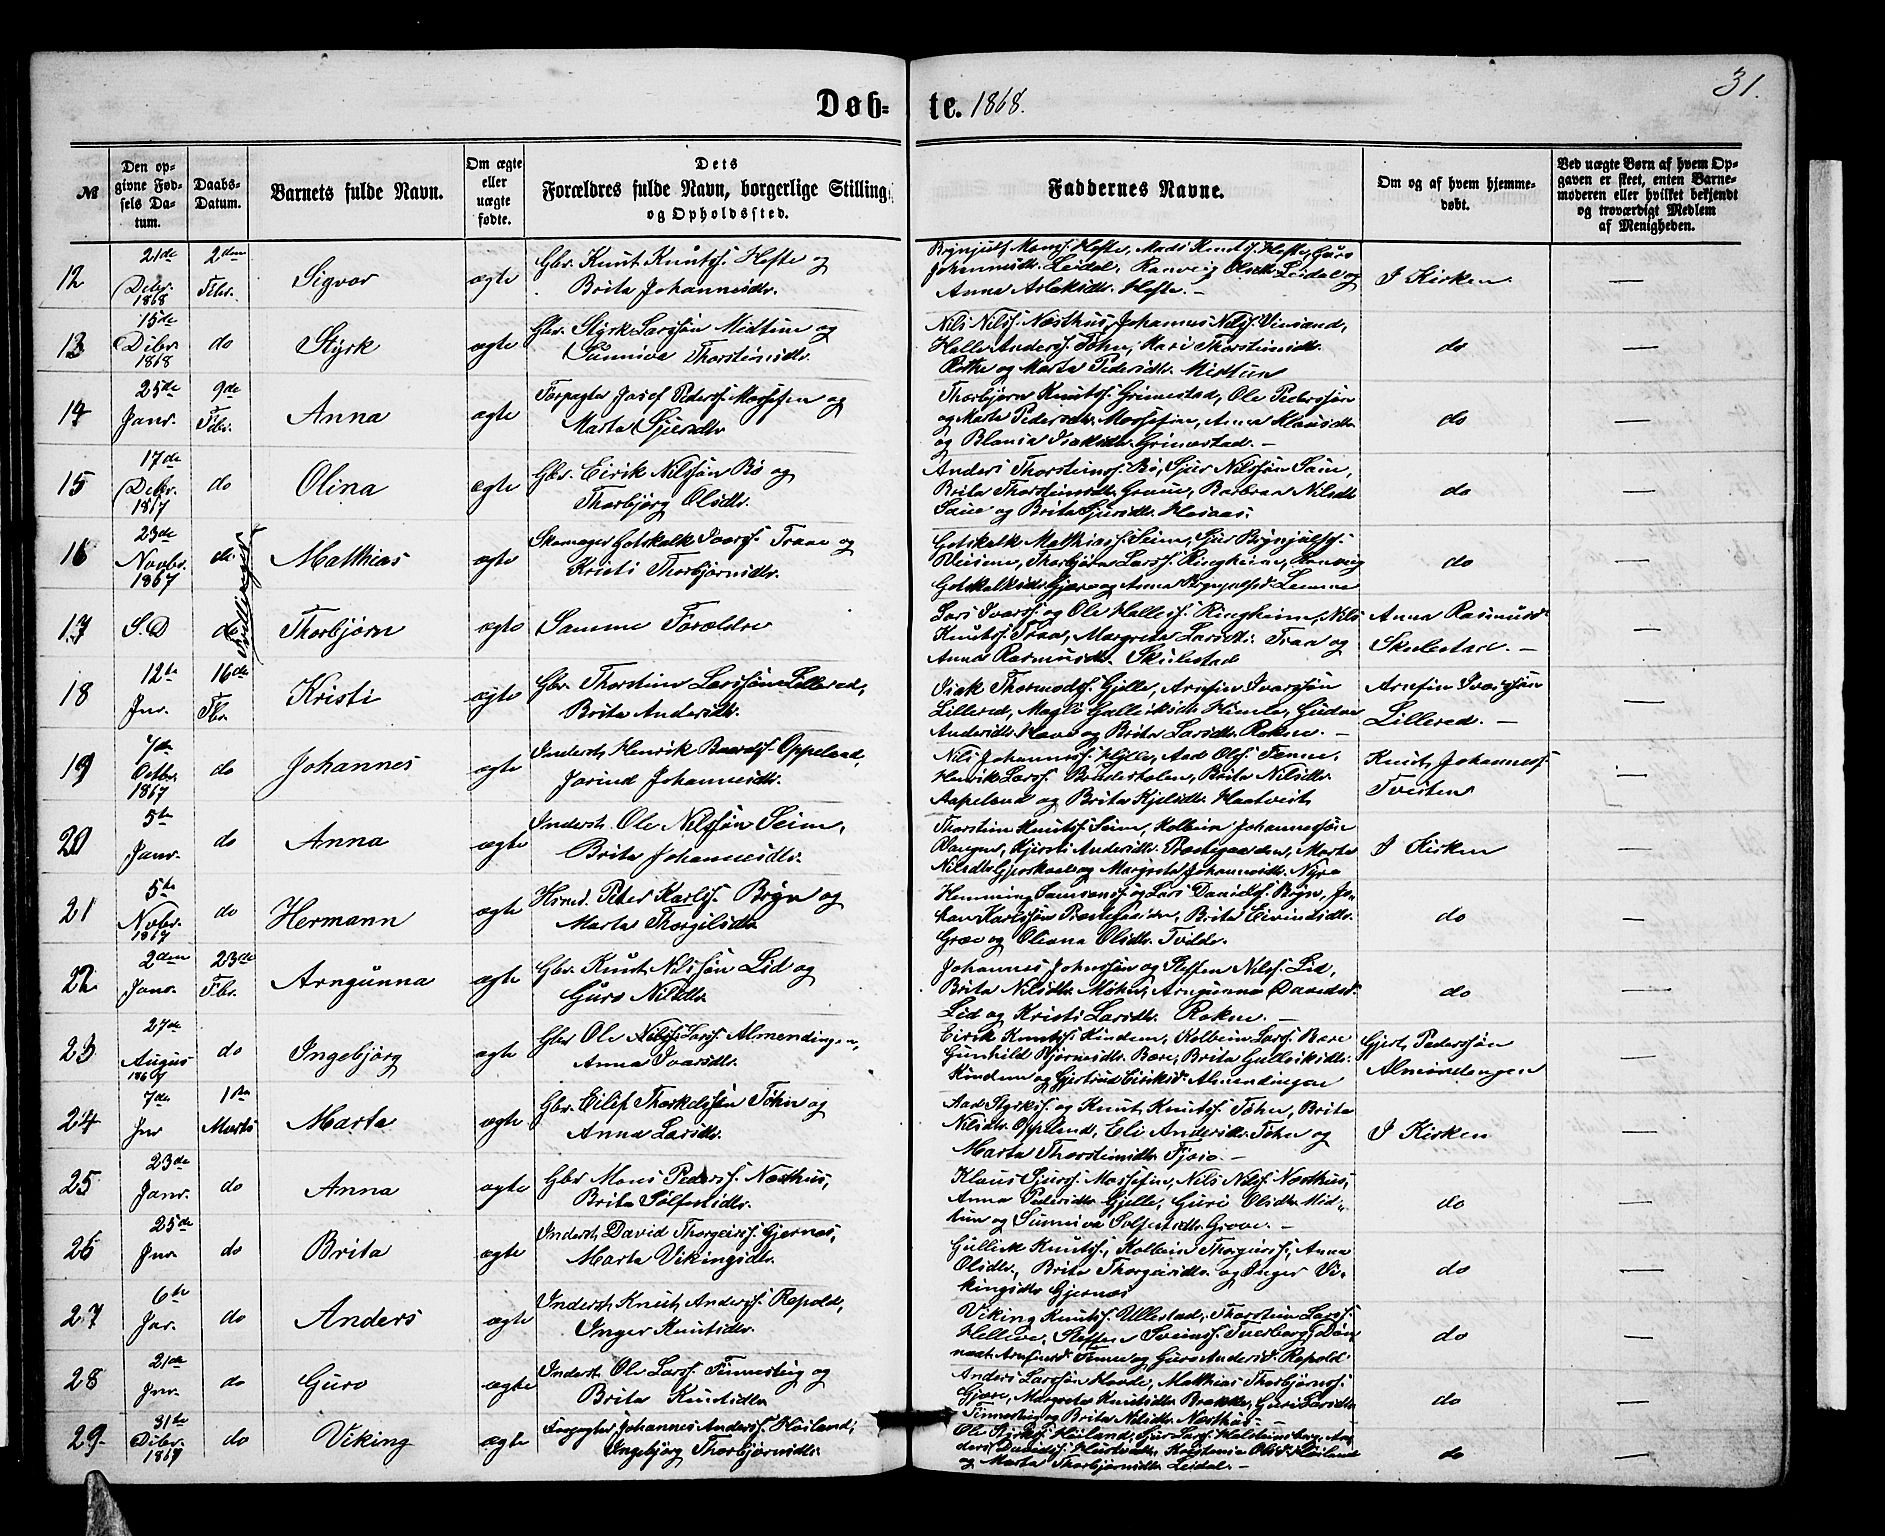 Døb-
te. 1868.
31.
№
Den opgivne Fødsels Datum.
Daabs-Datum.
Barnets fulde Navn.
Om ægte eller uægte fødte.
Dets
Forældres fulde Navn, borgerlige Stilling,
og Opholdssted.
Faddernes Navne.
Om og af hvem hjemme-
døbt.
Ved uægte Børn af hvem Op-
gaven er skeet, enten Barne-
moderen eller hvilket bekjendt
og troværdigt Medlem
af Menigheden.
12 21de Debr. 1868 2den Febr. Sigvor ægte Gbr. Knut Knutss. Hefte og
Brita Johannesdtr.
Brynjulf Monss. Hefte, Mads Knutss. Hefte, Guro
Johannesdtr. Leidal, Ranveig Olsdtr. Leidal og
Anna Aslaksdtr. Hefte. —
I Kirken —
13 15de Debr. 1868 do Styrk ægte Gbr. Styrk Larssøn Midtun og
Sunniva Thorsteinsdtr.
Nils Nilss. Næsthus, Johannes Nilss. Vinsand,
Halle Anderss. Tøhn, Kari Thorsteinsdtr.
Rothe og Marta Pedersdtr. Midtun
do —
14 25de Janr. 9de Febr. Anna ægte Forpagter Josef Pederss. Mossefin og
Marta Sjursdtr.
Thorbjørn Knutss. Grimestad, Ole Pederssøn
og Marta Pedersdtr. Mossefin, Anna Klausdtr.
og Blansa Isaksdtr. Grimestad. —
do —
15 17de Debr. 1867 do Olina ægte Gbr. Eirik Nilssøn Bø og
Thorbjørg Olsdtr.
Anders Thorsteinss. Bø, Sjur Nilssøn Saue,
Brita Thorsteinsdtr. Graue, Barbraa Nilsdtr.
Saue og Brita Sjursdtr.
do —
16 23de Novbr. 1867 do Matthias ægte Skomager Gotskalk Ivarss. Traae og
Kristi Thorbjørnsdtr.
Tvillinger
Gotskalk Mathiass. Seim, Sjur Brynjulfss.
Thorbjørn Larss. Ringheim, Ranveig
Gotskalksdr. Gjære og Anna Brynjulfsd.
do —
17 S.D do Thorbjørn ægte Samme Forældre
Lars Ivarss. og Ole Halless. Ringheim, Nils
Knutss. Traa, Margreta Larsdtr. Traa og
Anna Rasmusdtr. Skulestad
Anna Rasmusd.
Skulestad. — —
18 12te Jnr. 16de Fbr. Kristi ægte Gbr. Thorstein Larssøn Lillered,
Brita Andersdtr.
Isak Thormodss. Gjelle, Arnfin Ivarssøn
Lillered, Magli Gulleiksdtr. Himle, Gudve
Andersdtr. Have og Brita Larsdtr. Rokne. —
Arnfin Ivarssøn
Lillered. — —
19 7de Octbr. 1867 do Johannes ægte Inderst. Henrik Baardss. Oppeland,
Jorind Johannesdtr.
Nils Johanness. Hylle, Aad Olss. Fenne,
Henrik Larss. Brita Nilsdtr.
Aapeland og Brita Kjelsdtr. Haatveit
Knut Johanness.
Tveiten —
20 5te Janr. do Anna ægte Inderst. Ole Nilssøn Seim,
Brita Johannesdtr.
Thorstein Knutss. Seim, Kolbein Johannessøn
Vangen, Kjersti Andersdtr. Præstegaarden, Marta
Nilsdtr. Gjerskaale og Margreta Johannesdtr. Nyre
I Kirken —
21 5te Novbr. 1867 do Hermann ægte Husmd. Peter Karlss. Bryn og
Marta Thorgilsdtr.
Hemming Samsonss. og Lars Davidss. Bryn, Jo-
han Karlssøn Brita Eivindsdtr.
Græe og Oliana Olsdtr. Tvilde.
do —
22 2den Janr. 23de Fbr. Arngunna ægte Gbr. Knut Nilssøn Lid og
Guro Nilsdtr.
Johannes Johnssøn og Steffen Nilss. Lid,
Brita Nilsdtr. Møhn, Arngunna Davidsd.
Lid og Kristi Larsdtr. Rokne. —
do —
23 27de Augus 1867 do Ingebjørg ægte Gbr. Ole Larss. Almendingen,
Anna Ivarsdtr.
Eirik Knutss. Kindem, Kolbein Larss. Bære
Gunhild Bjørnsdtr. Bære, Brita Gulleiksdtr.
Kindem og Gjertrud Eiriksd. Almendingen
Gjert Pederssøn
Almendingen —
24 7de Jnr 1ste Marts Marta ægte Gbr. Eilef Thorkelssøn Tøhn og
Anna Larsdtr.
Aad Styrkss. og Knut Knutss. Tøhn, Brita
Nilsdtr. Oppeland, Eli Andersdtr. Tøhn og
Marta Thorsteinsdtr. Fjoso. —
I Kirken —
25 23de Janr. do Anna ægte Gbr Mons Pederss. Næsthus,
Brita Sølfestsdtr.
Klaus Sjurss. Mossefin, Nils Nilss. Næsthus,
Anna Pedersdtr. Gjelle, Guri Olsdtr. Mid-
tun og Sunniva Solfestsdtr. Grove. —
do —
26 25de Jnr. do Brita ægte Inderst. David Thorgeirss. Gjernæs,
Marta Vikingsdtr.
Gulleik Knutss., Kolbein Thorgeirss., Anna
Olsdtr., Brita Thorgeirsdtr. og Inger Vi-
kingsdtr. Gjernæs
do —
27 6te Jnr. do Anders ægte Inderst. Knut Anderss. Repold,
Inger Knutsdtr.
Viking Knutss. Ullestad, Thorstein Larss.
Helleve, Steffen Sveinss. Tverberg,
Arnfinsd. Fenne og Guro Andersd. Repold
do —
28 21de Jnr. do Guro ægte Inderst. Ole Larss. Finnesteig og
Brita Knutsdtr.
Anders Larssøn Hovde, Matthias Thorbjørnss.
Gjære, Margreta Knutsdtr. Brakke, Guri Larsdtr.
Finnesteig og Brita Nilsdtr. Næsthus —
do —
29 31te Debr. 1867 do Viking ægte Forpagter Johannes Anderss. Høiland,
Ingebjørg Thorbjørnsdtr.
Ole Styrkss. Høiland, Sjur Larss. An-
ders Davidss. Kristense Olsd. Høiland
og Marta Thorbjørnsdtr. Leidal. —
do —